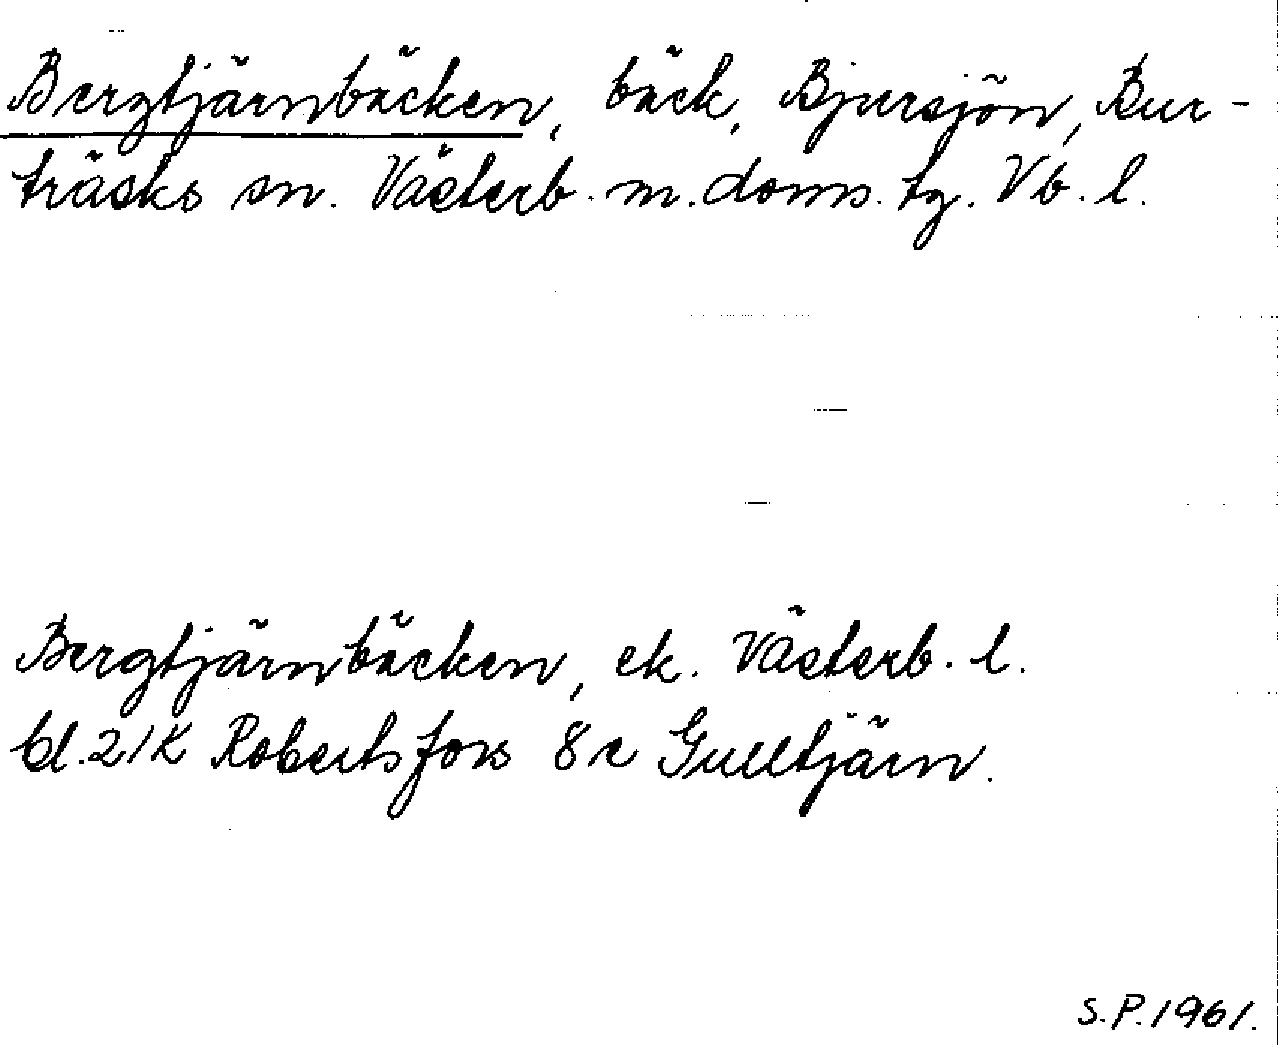 Bergtjärnbäcken, bäck, Bjursjön, Bur-
träsks sn. Västerb. m. doms. tg. Vb. l.
Bergtjärnbäcken, ek. Västerb. l.
bl. 21K Robertsfors 8c Gulltjärn.
S.P. 1961.